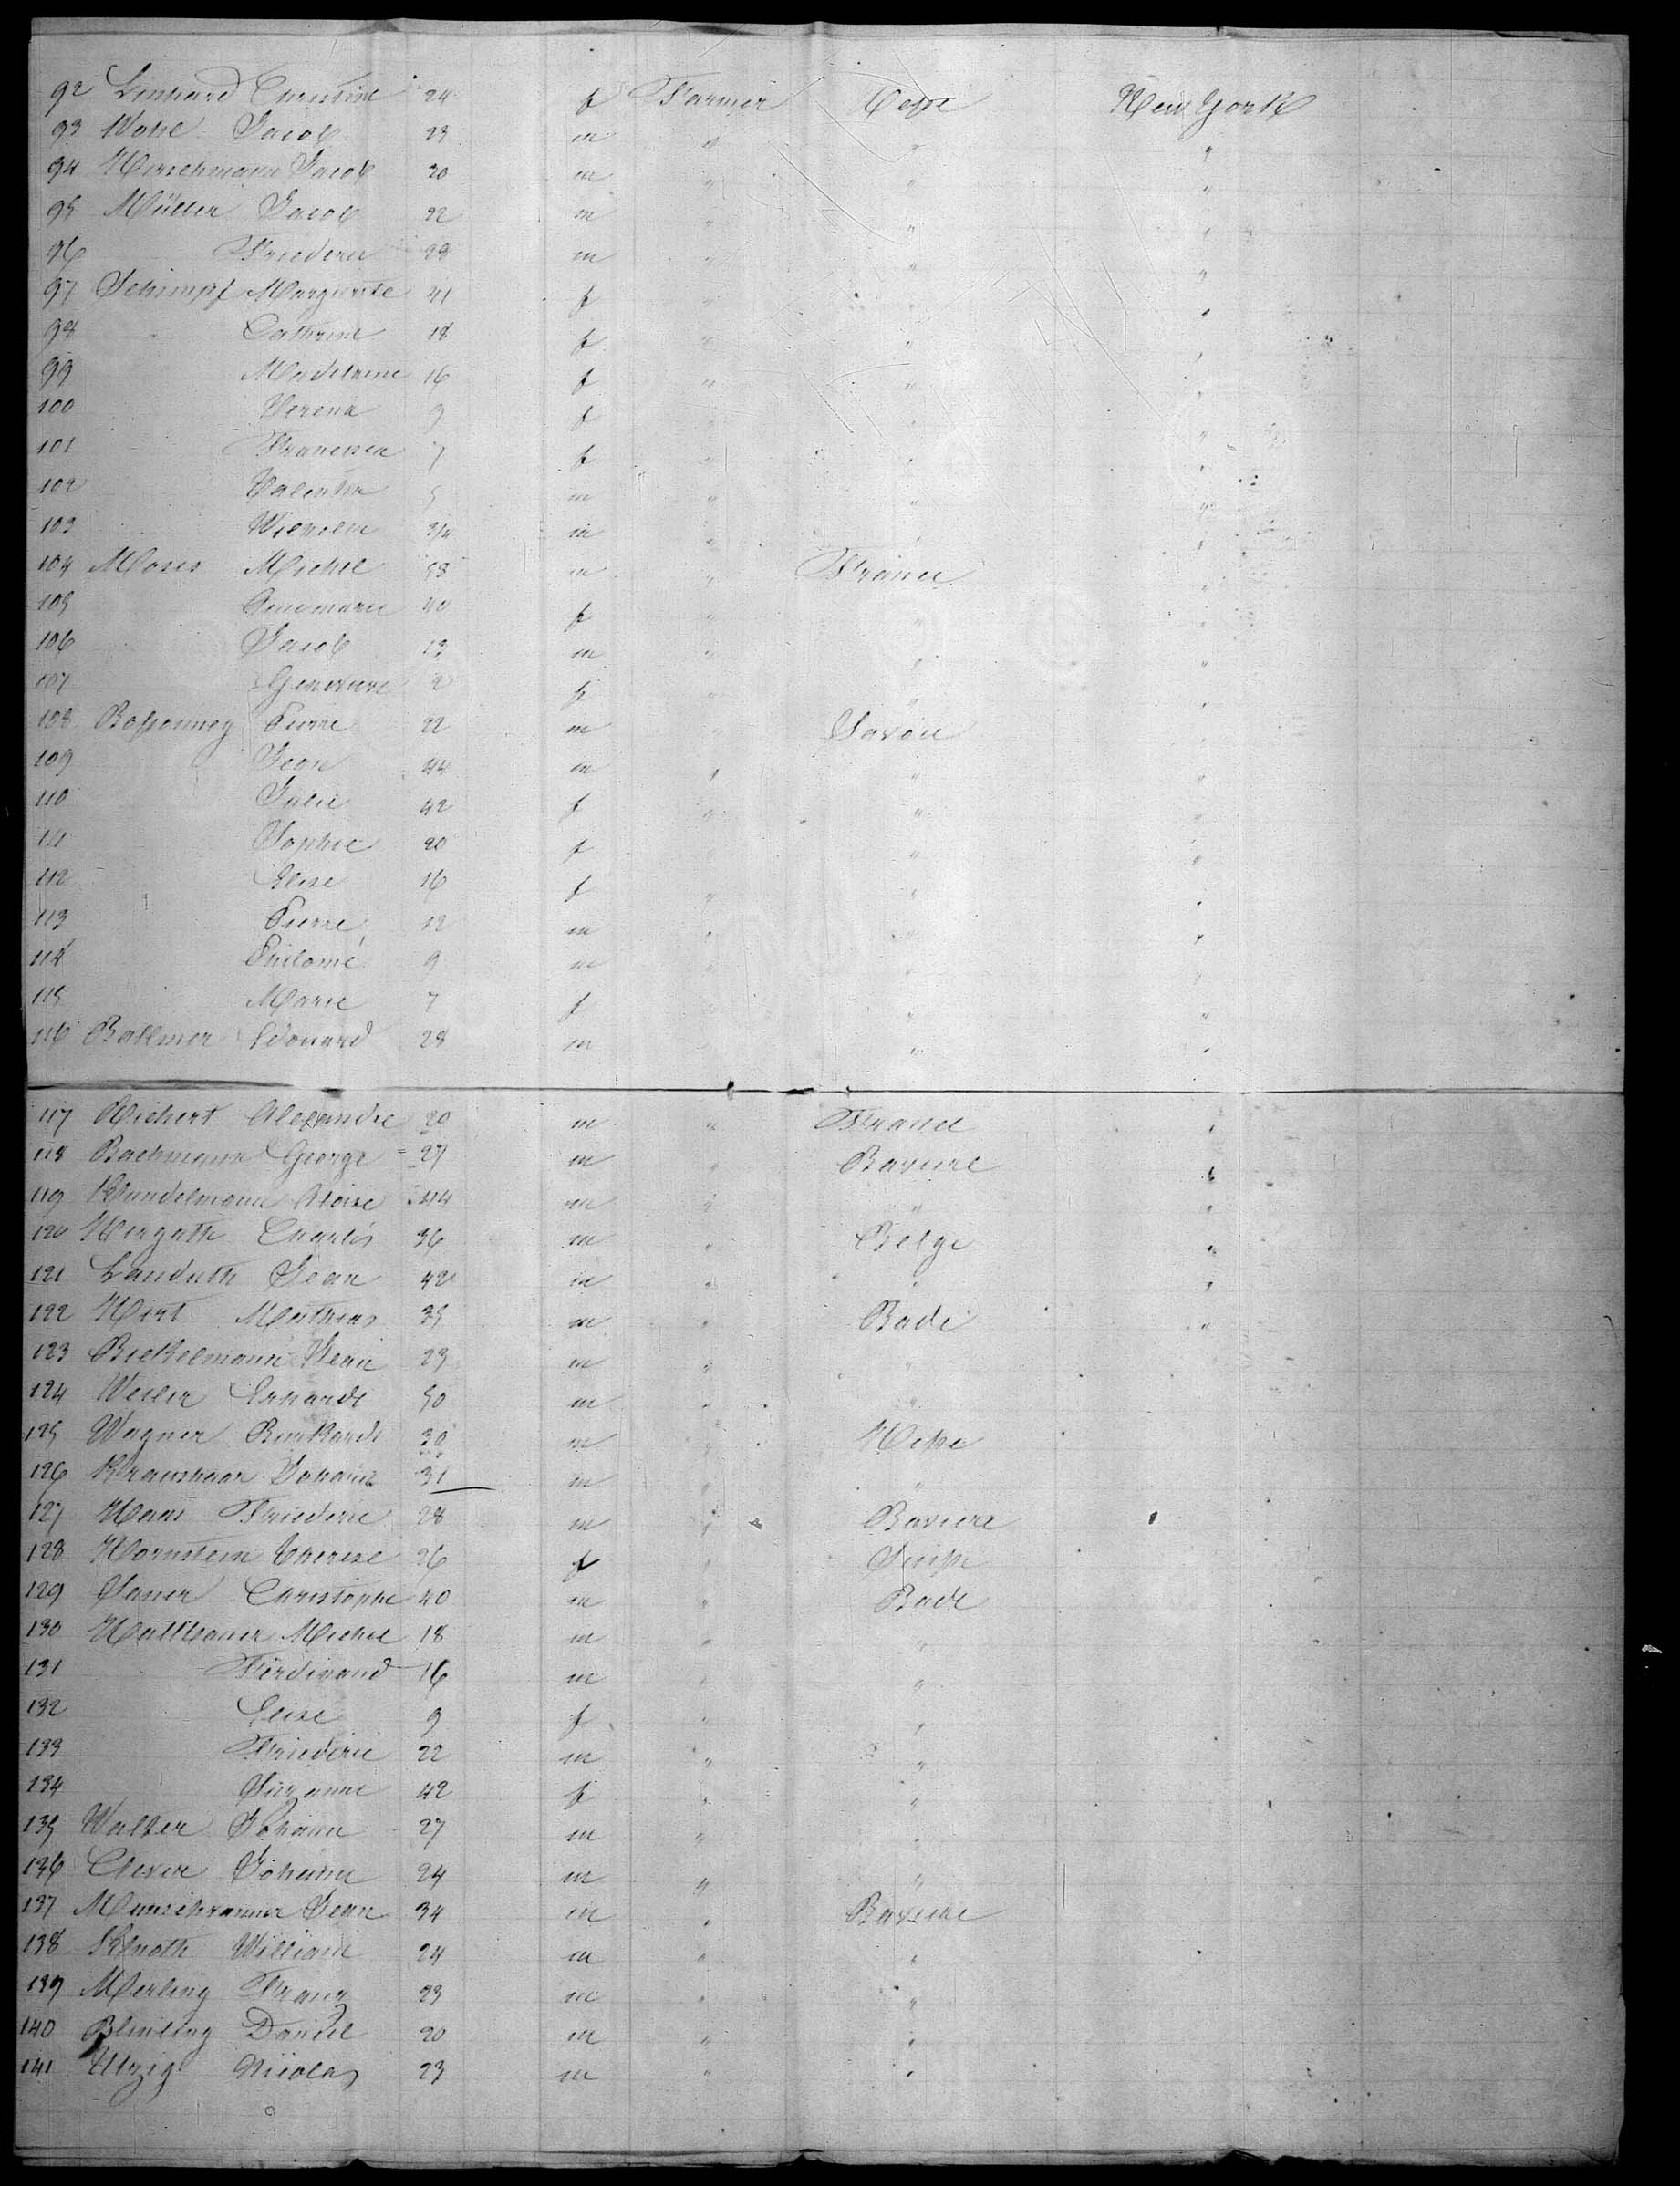 92 Linhard Christine 24 f Farmer New York
93 Jacob 23 m " " "
94 Herschmann Jacob 20 m " " "
95 Müller Jacob 22 m " " "
96 Friederic 28 m " " "
97 Schimpf Marguerite 41 f " " "
98 " Cathrine 18 f " " "
99 Madelaine 16 f " " "
100 Verena 9 f " " "
101 Francisca 7 f " " "
102 Valentin 5 m " " "
103 3/4 m " " "
104 Moses Michel 58 m " France "
105 Annemarie 40 f " " "
106 Jacob 13 m " " "
107 Genevieve 2 f " " "
108 Boßonney Pierre 22 m " Savoie "
109 Jean 44 m " " "
110 Julie 42 f " " "
111 Sophie 20 f " " "
112 Elise 16 f " " "
113 Pierre 12 m " " "
114 Philomé 9 m " " "
115 Marie 7 f " " "
116 Ballmer Edouard 28 m " "
117 Richert Alexandre 20 m " France "
118 Bachmann George 27 m " Baviere "
119 Kundelmann Aloise 44 m " " "
120 Hergath Charles 36 m " Belge "
121 Landuth Jean 42 m " " "
122 Hirt Mathias 35 m " Bade "
123 Bickelmann Jean 23 m " "
124 Weiler Erhardt 50 m " "
125 Wagner Burkardt 30 m " Heße
126 Kraushaar Johann 31 m " "
127 Haas Friederic 28 m " Baviere
128 Hornstein Therese 26 f " Suiße
129 Sauer Christophe 40 m " Bade
130 Hüttbauer Michel 18 m " "
131 Ferdinand 16 m " "
132 Elise 9 f " "
133 Friederic 22 m " "
134 Suzanne 42 f " "
135 Walter Johann 27 m " "
136 Johann 24 m " "
137 Jean 34 m " Baviere
138 Knoth William 24 m " "
139 Merling Franz 23 m " "
140 Daniel 20 m " "
141 Utzig Nicolas 23 m " "